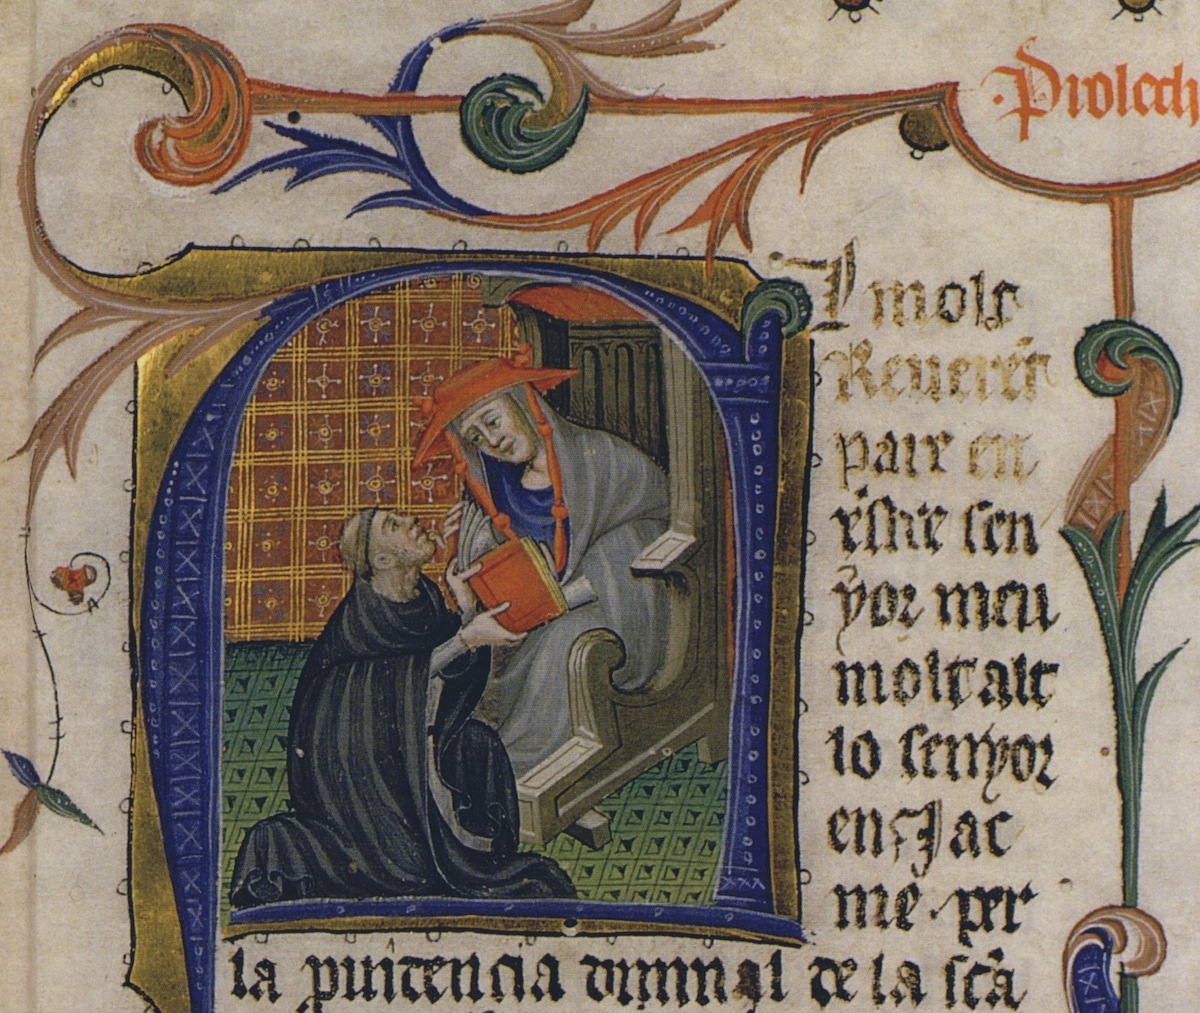 ·Prolech
Al molt
Reuerēt
pare en
sen
yor meu
molt alt
lo senyor
en Jac
me · per
la puidencia diuinal de la scā